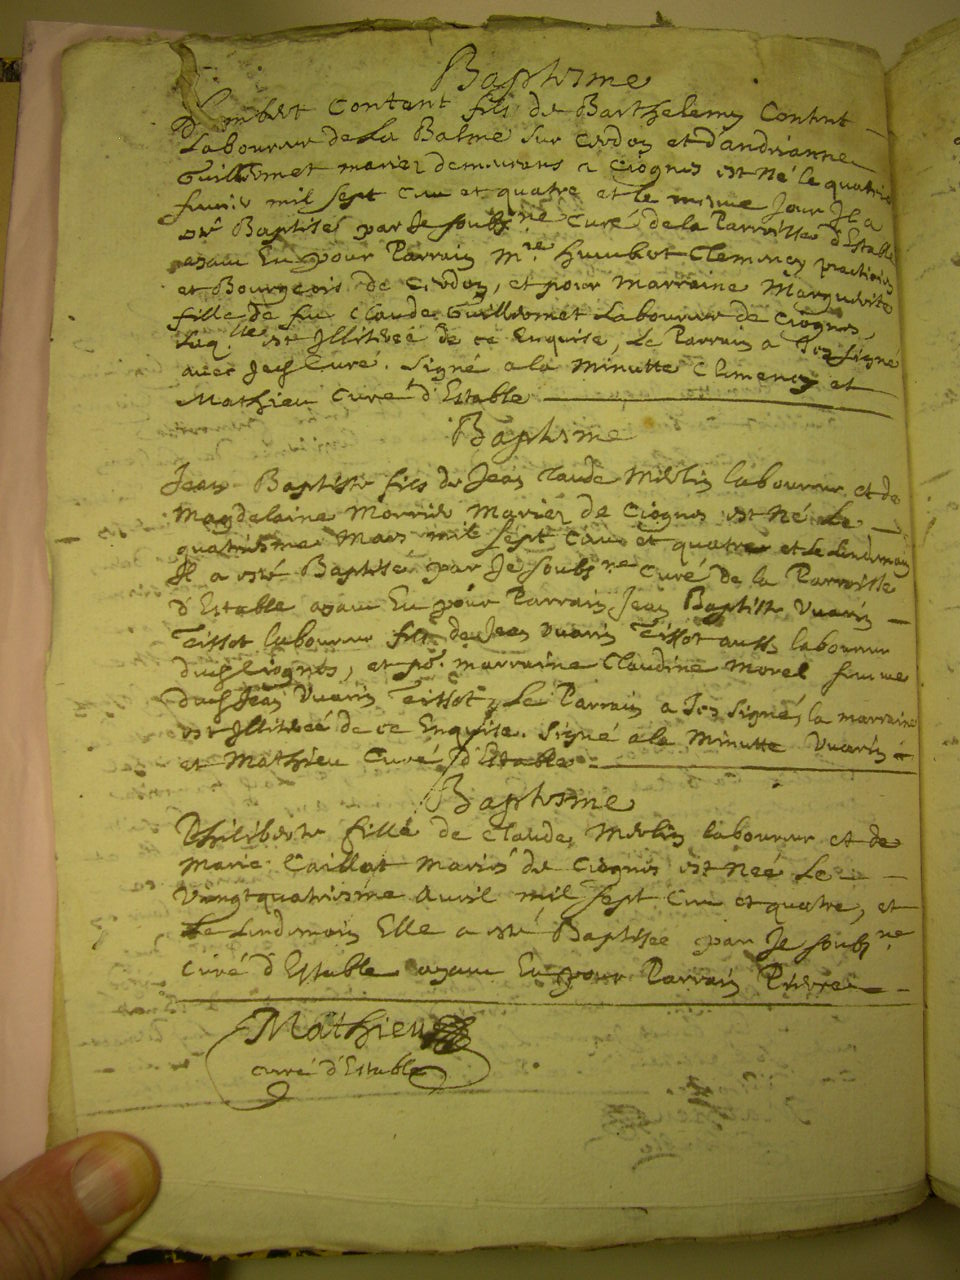 Baptisme
Humbert Contant fils de Barthelemy Contant
Laboureur de La Balme sur Cerdon et dandrianne
Guillermet mariez demeurans a Ciognes est Né le quatrie
fevrier mil sept cen et quatre et le mesme Jour Il a
esté Baptisé par Je soubs.né Curé de la Parroisse d'Estable
ayant Eu pour Parrain M.re Humbert Clemency practicien
et Bourgeois de Cerdon, et pour Marraine Marguerite
fille de feu Claude Guillermet Laboureur de Ciognes,
Laq.lle est Illiterée de ce Enquise, Le Parrain a Icy signé
avec Je Curé. Signé a la Minutte Clemency et
Mathieu Curé d'Estable
Baptisme
Jean Baptiste fils de Jean Claude Merlin laboureur et de
Magdelaine Monnier Mariez de Ciognes est Né Le
quatriesme Mars mil sept cen et quatre et Le Lendemain
Il a esté Baptisé par Je soubs.ne Curé de la Parroisse
d'Estable ayant Eu pour Parrain Jean Baptiste Vuarin
Tissot laboureur fils de Jean Vuarin Tissot aussy laboureur
dud Ciognes, et po.r marraine Claudine Morel femme
dud Jean Vuarin Tissot, Le Parrain a Icy signé, la marraine
est Illiterée de ce Enquise. Signé a la Minutte Vuarin
et Mathieu Curé d'Estable
Baptisme
Philiberte fille de Claude Merlin laboureur et de
Marie Caillat Mariés de Ciognes est Neé Le
Vingtquatriesme Avril mil sept Cen et quatre, et
Le Lendemain Elle a esté Baptisée par Je soubs.ne
Curé d'Estable ayant Eu pour Parrain Pierre
Mathieu
curé d'Estable